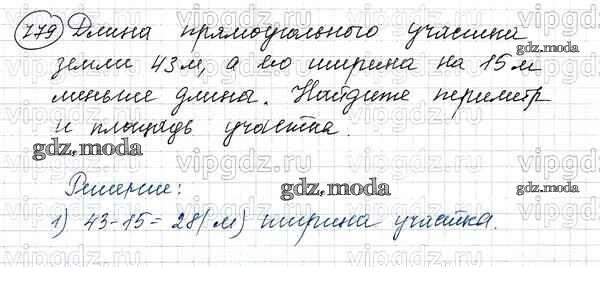 779 Длина прямоугольного участка
земли 43 м, а его ширина на 15 м
меньше длины. Найдите периметр
и площадь участка.
Решение:
1) 43-15=28(м) ширина участка.
gdz.moda
gdz.moda
gdz.moda
vipgdz.ru